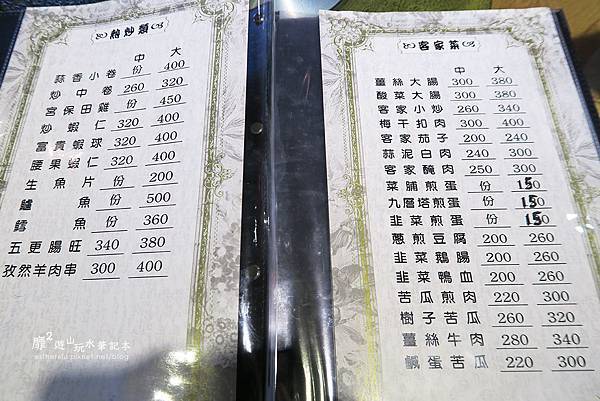 熱炒類
中 大
蒜香小卷 份 400
炒中卷 260 320
宮保田雞 份 450
炒蝦仁 320 400
富貴蝦球 320 400
腰果蝦仁 320 400
生魚片 份 200
鱸魚 份 500
鱈魚 份 360
五更腸旺 340 380
孜然羊肉串 300 400
客家菜
中 大
薑絲大腸 300 380
酸菜大腸 300 380
客家小炒 260 340
梅干扣肉 300 400
客家茄子 200 240
蒜泥白肉 240 300
客家醃肉 250 300
菜脯煎蛋 份 150
九層塔煎蛋 份 150
韭菜煎蛋 份 150
蔥煎豆腐 200 260
韭菜鵝腸 200 260
韭菜鴨血 200 260
苦瓜煎肉 220 300
樹子苦瓜 260 320
薑絲牛肉 280 340
鹹蛋苦瓜 220 300
靡2遊山玩水筆記本
estherelu.pixnet.net/blog